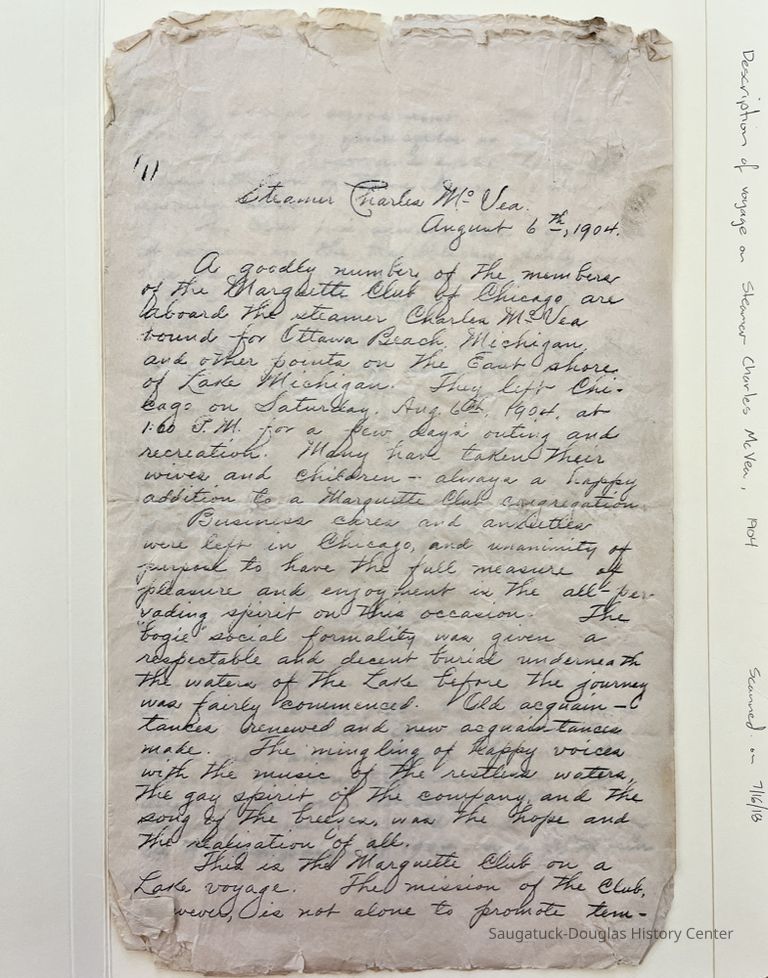 (1)
Steamer Charles Mc Vea.
August 6th, 1904.
A goodly number of the members
of the Marquette Club of Chicago are
aboard the steamer Charles Mc Vea
bound for Ottawa Beach, Michigan,
and other points on the East shore
of Lake Michigan. They left Chi-
cago on Saturday, Aug. 6th, 1904, at
P.M. for a few days outing and
recreation. Many have taken their
wives and children - always a happy
addition to a Marquette Club congregation.
Business cares and anxieties
were left in Chicago, and unanimity of
purpose to have the full measure of
pleasure and enjoyment is the all-per-
vading spirit on this occasion. The
"bogie" social formality was given a
respectable and decent burial underneath
the waters of the Lake before the journey
was fairly commenced. Old acquain-
tances renewed and new acquaintances
made. The mingling of happy voices
with the music of the restless waters,
the gay spirit of the company, and the
song of the breezes, was the hope and
the realisation of all.
This is the Marquette Club on a
Lake voyage. The mission of the Club,
wever, is not alone to promote tem-
Description of voyage on Steamer Charles McVea, 1904
Scanned on 7/16/18
Saugatuck-Douglas History Center